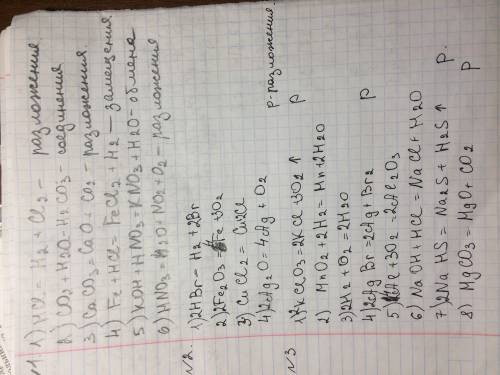 №1. 1) HCl = H2 + Cl2 – разложения
2) CO2 + H2O = H2CO3 – соединения
3) CaCO3 = CaO + CO2 – разложения
4) Fe + HCl = FeCl2 + H2 – замещения
5) KOH + HNO3 = KNO3 + H2O – обмена
6) HNO3 = H2O + NO2 + O2 – разложения
№2. 1) 2HBr – H2 + 2Br
2) 2Fe2O3 = Fe + 3O2
3) CuCl2 = Cu+2Cl
4) 2Ag2O = 4Ag + O2
р-разложения
№3 1) 2KClO3 = 2KCl + 3O2 ↑ р
2) MnO2 + 2H2 = Mn + 2H2O
3) 2H2 + O2 = 2H2O
4) 2AgBr = 2Ag + Br2 р
5) 4Al + 3O2 = 2Al2O3
6) NaOH + HCl = NaCl + H2O
7) 2NaHS = Na2S + H2S ↑ р.
8) MgCO3 = MgO + CO2 р